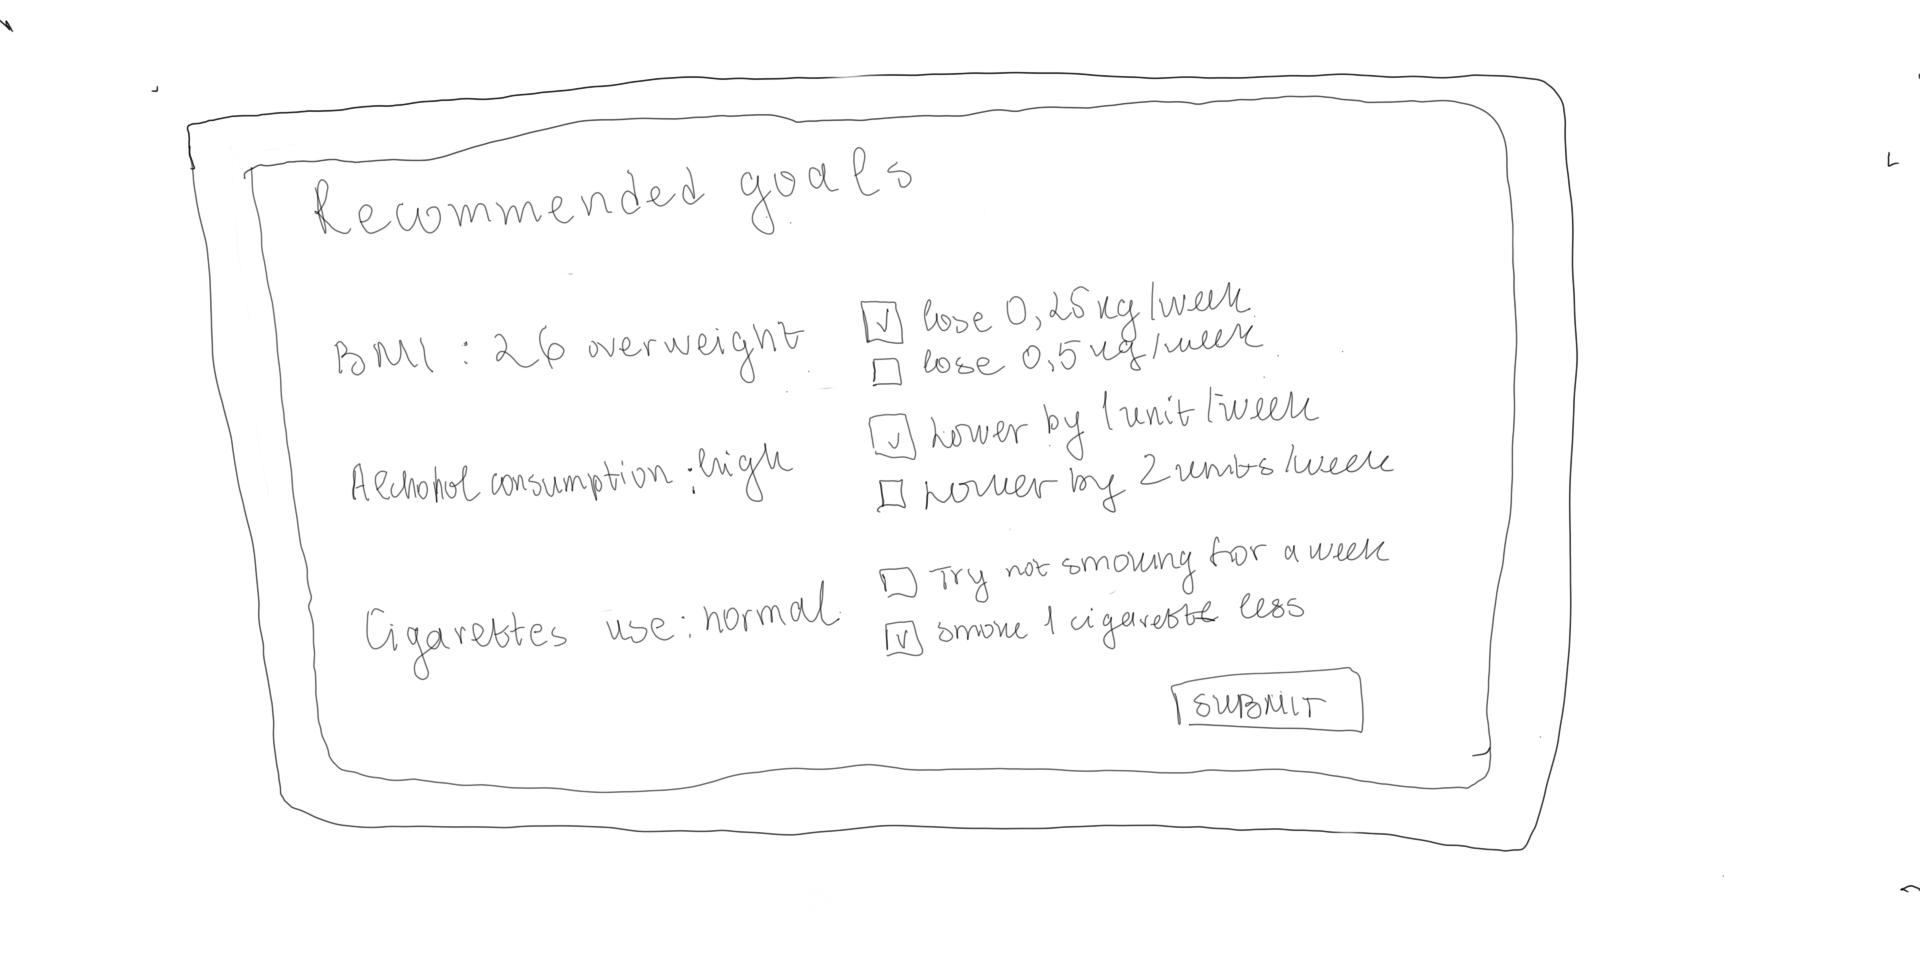 Recommended goals
BMI : 26 overweight
lose 0,25 kg/week
lose 0,5 kg/week
Alchohol consumption : high
Lower by 1 unit/week
Lower by 2 units/week
Cigarettes use : normal
Try not smoking for a week
smoke 1 cigarette less
SUBMIT